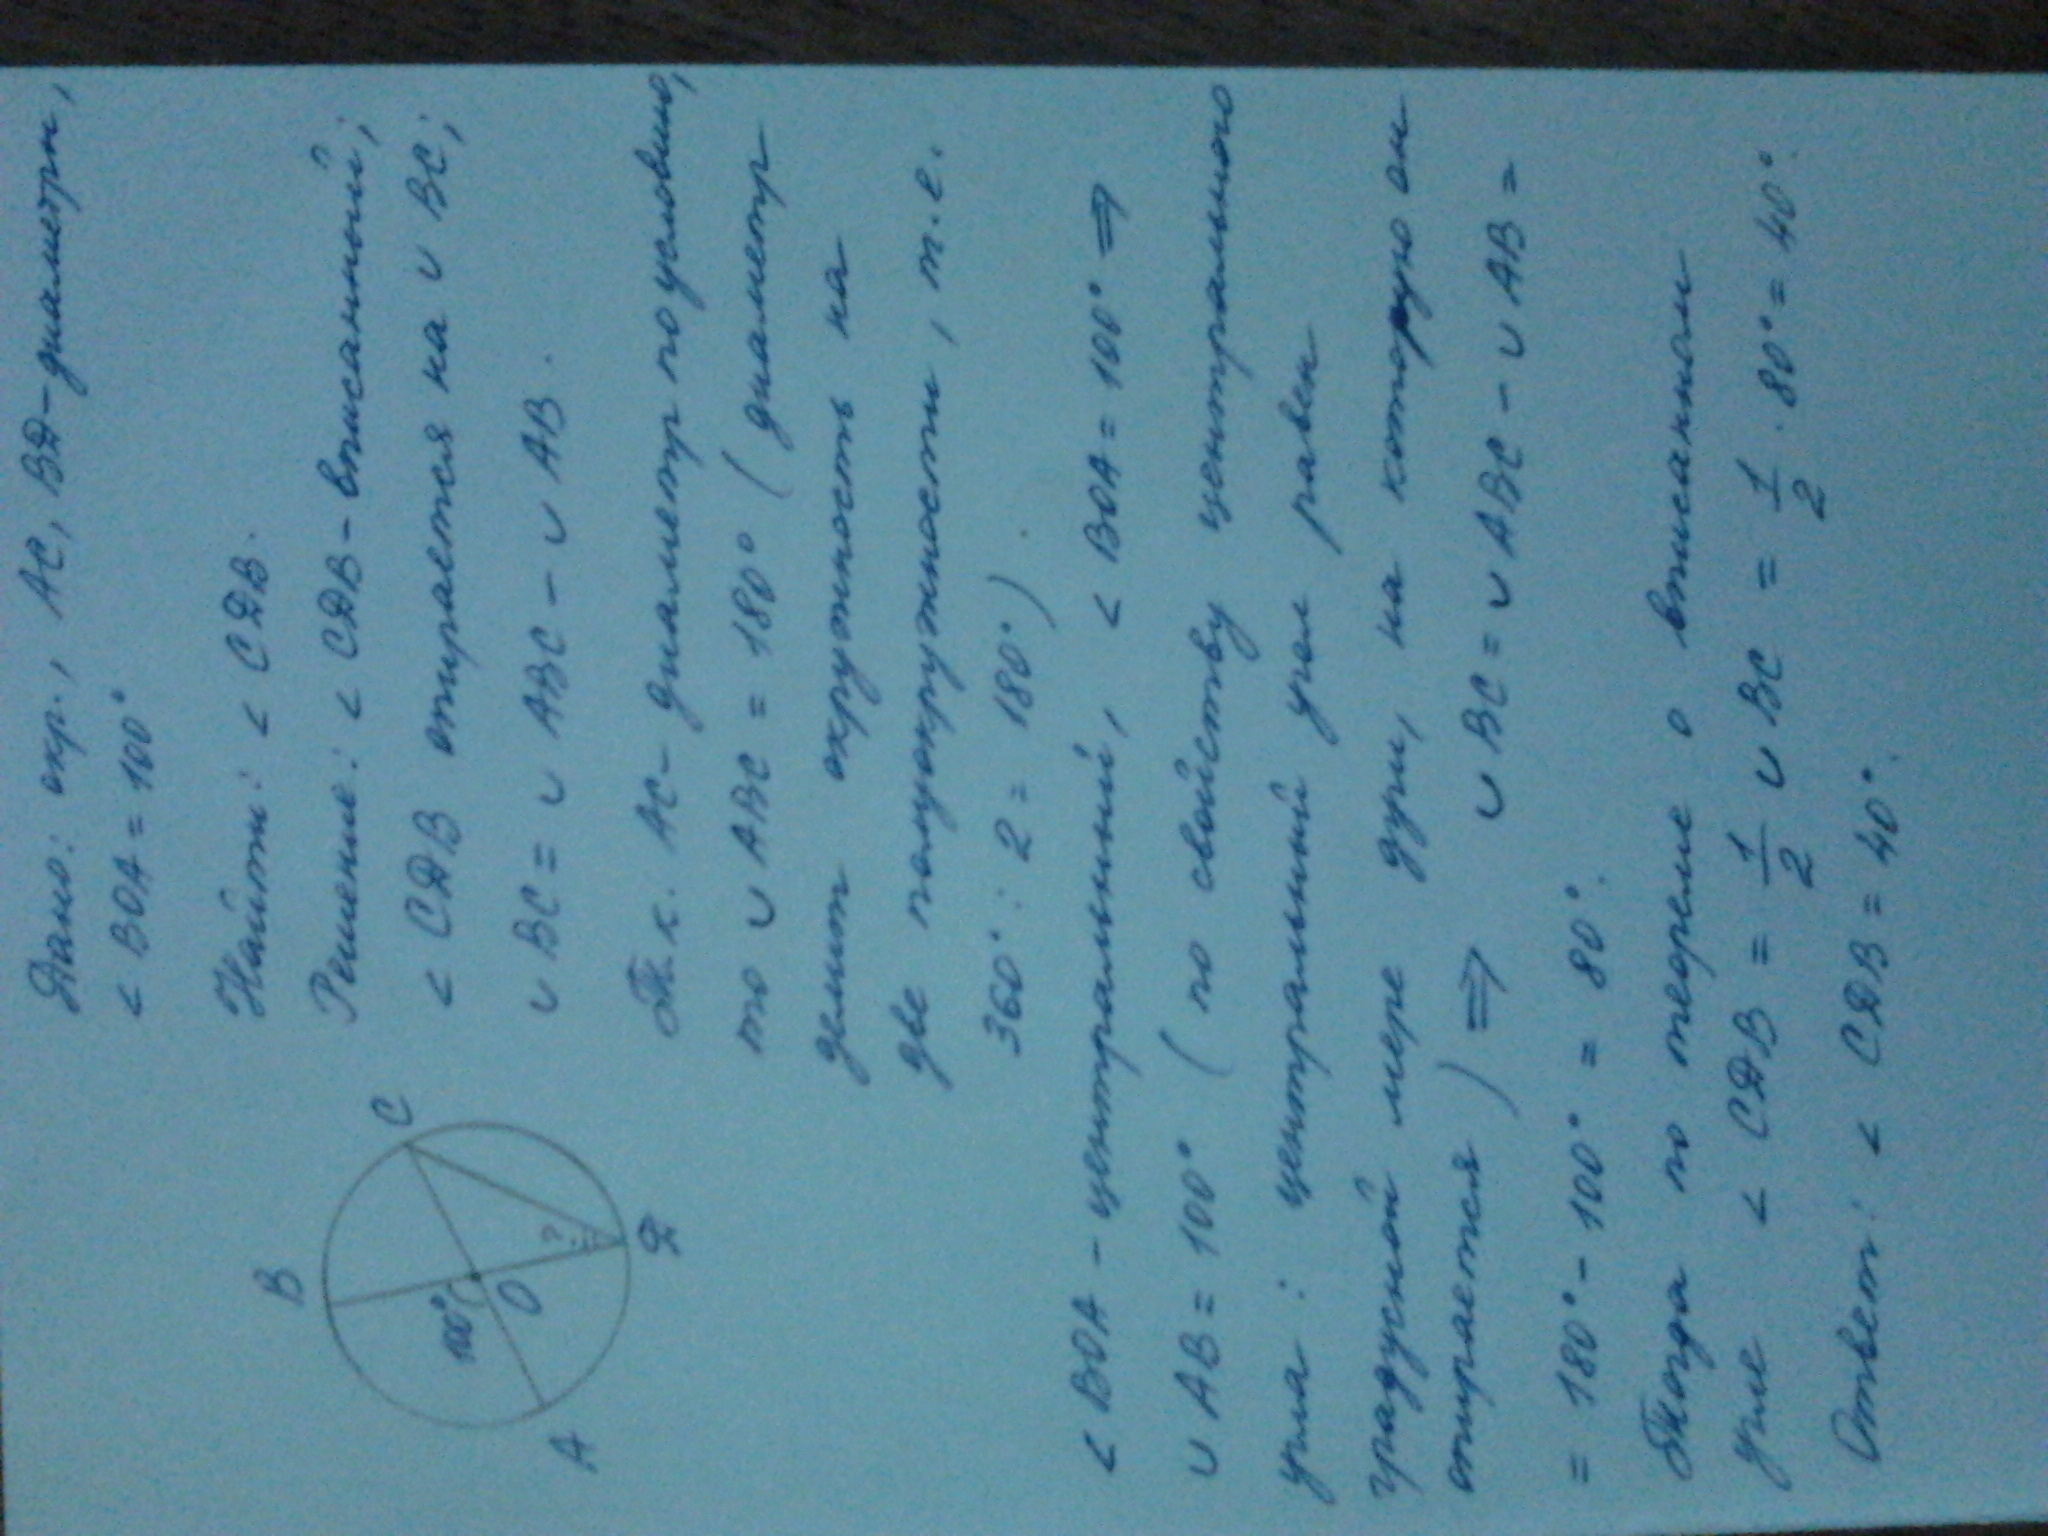 Дано: окр., AC, BД-диаметры,
< BOA = 100°
Найти: < CДB.
Решение: < CДB - вписанный;
< CДB опирается на ∪ BC;
∪ BC = ∪ ABC - ∪ AB.
Т.к. AC - диаметр по условию,
то ∪ ABC = 180° (диаметр
делит окружность на
две полуокружности, т.е.
360° : 2 = 180°)
B
C
100°
O
?
A
Д
< BOA - центральный, < BOA = 100° ⇒
∪ AB = 100° (по свойству центрального
угла: центральный угол равен
градусной мере дуги, на которую он
опирается) ⇒ ∪ BC = ∪ ABC - ∪ AB =
= 180° - 100° = 80°.
Тогда по теореме о вписанном
угле < CДB = 1/2 ∪ BC = 1/2 · 80° = 40°.
Ответ: < CДB = 40°.